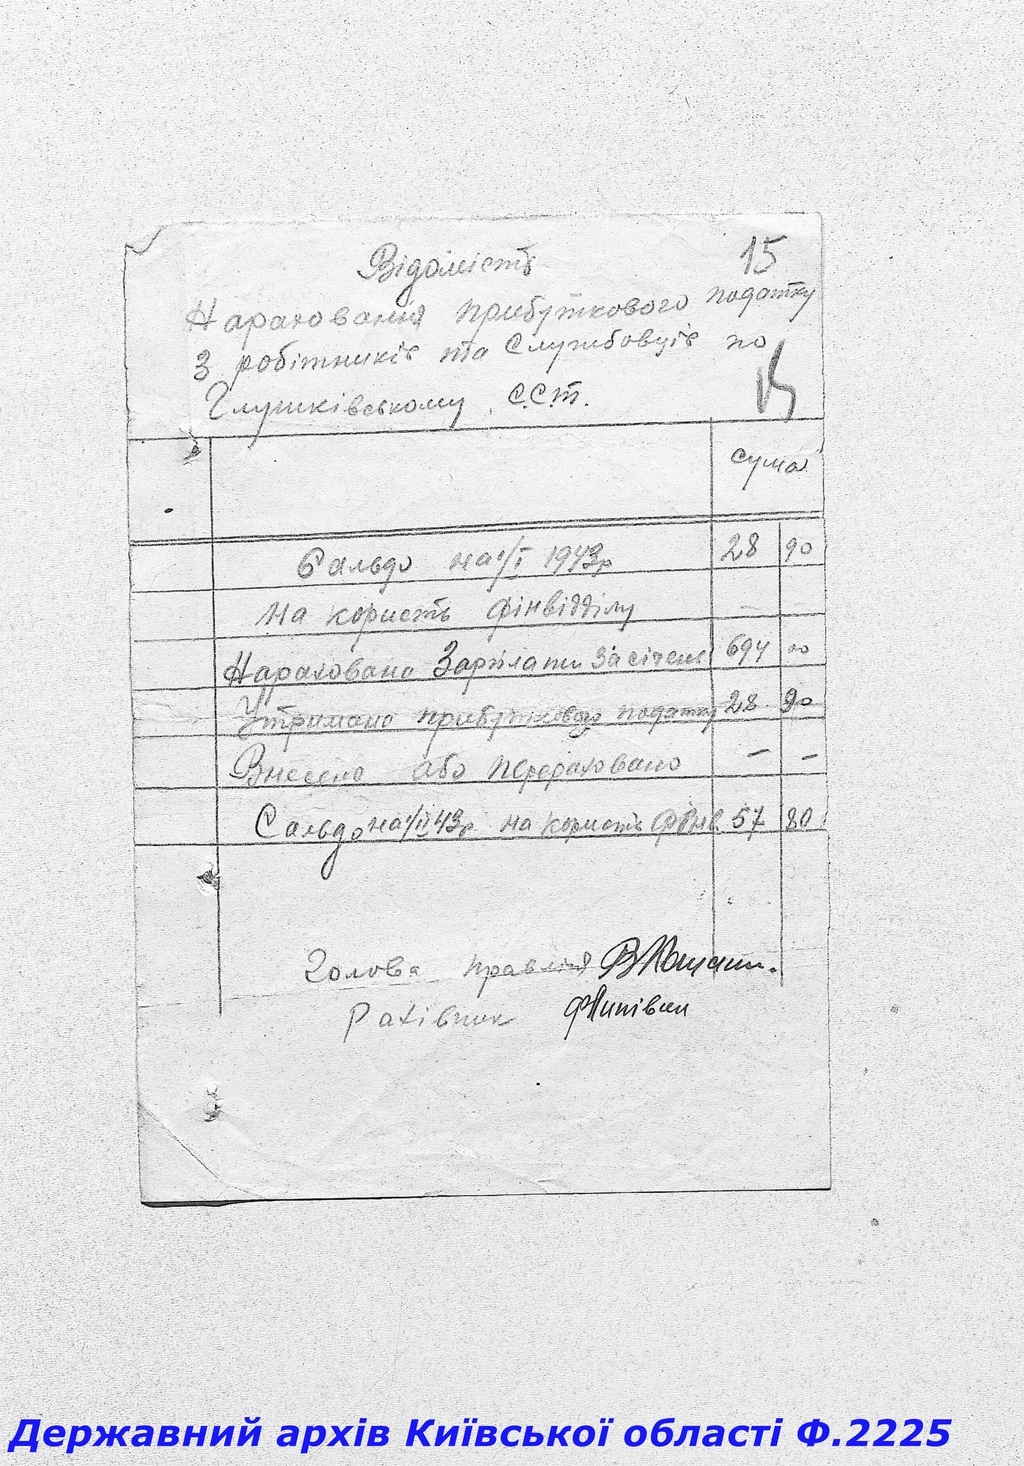 Відомість 15
Нарахования прибуткового податку
З робітників та Службовців по
Глушківському С.С.Т.
сума
Сальдо на 1/I 1943р 28 90
На користь фінвідділу
Нараховано Зарплати За січень 694 00
Утримано прибуткового податку 28 90
Внесено або перераховано — —
Сальдо на 1/II 43р. на користь Фінв. 57 80
Голова правлія
Рахівник
Державний архів Київської області Ф.2225